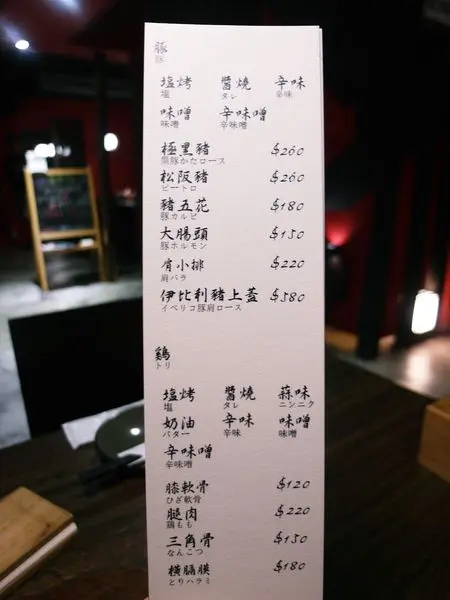 豚
豚
塩烤 醬燒 辛味
塩 タレ 辛味
味噌 辛味噌
味噌 辛味噌
極黑豬 $260
黒豚かたロース
松阪豬 $260
ピートロ
豬五花 $180
豚カルビ
大腸頭 $150
豚ホルモン
肩小排 $220
肩バラ
伊比利豬上蓋 $580
イベリコ豚肩ロース
鷄
トリ
塩烤 醬燒 蒜味
塩 タレ ニンニク
奶油 辛味 味噌
バター 辛味 味噌
辛味噌
辛味噌
膝軟骨 $120
ひざ軟骨
腿肉 $220
鶏もも
三角骨 $150
なんこつ
橫膈膜 $180
とりハラミ